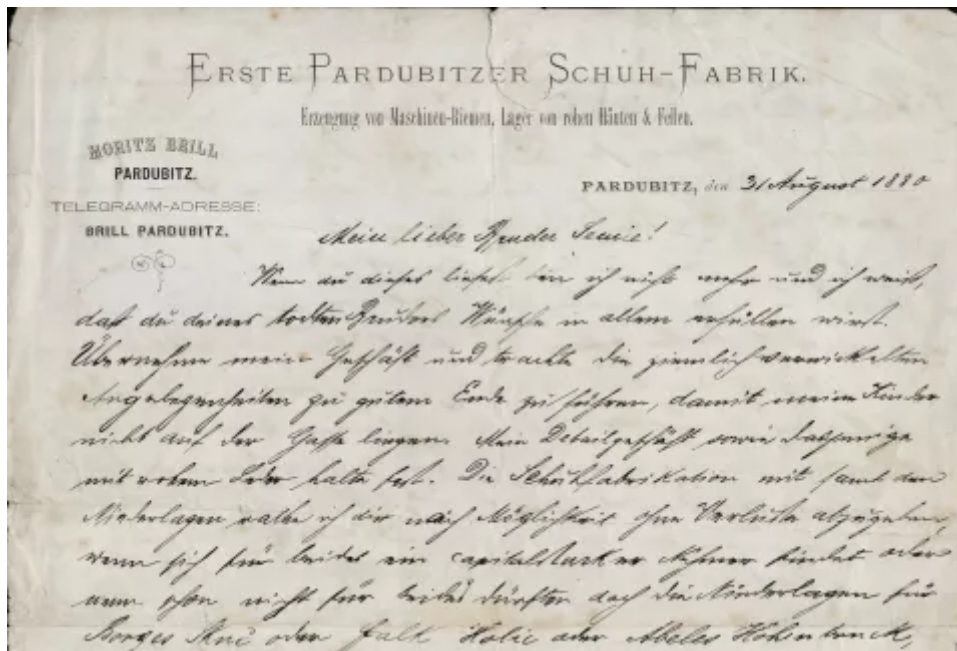 ERSTE PARDUBITZER SCHUH-FABRIK.
Erzeugung von Maschinen-Riemen, Lager von rohen Häuten & Fellen.
MORITZ BRILL
PARDUBITZ.
TELEGRAMM-ADRESSE:
BRILL PARDUBITZ.
PARDUBITZ, den 31 August 1880
Mein lieber Bruder
Wenn du dieses liesest bin ich nicht mehr und ich weiß,
daß du deines todten Bruders Wünsche in allem erfüllen wirst.
Übernehme mein Geschäft und trachte die ziemlich verwickelten
Angelegenheiten zu gutem Ende zu führen, damit meine Kinder
nicht auf der Gasse liegen. Mein Detailgeschäft sowie dasjenige
mit rohem Leder halte fest. Die Schuhfabrikation mit samt den
Niederlagen rathe ich dir nach Möglichkeit ohne Verluste abzugeben,
wenn sich für beides ein capitalstarker Nehmer findet oder
wenn schon nicht für beides dürften doch die Niederlagen für
oder Falk Holic oder Abeles Hohenbruck,